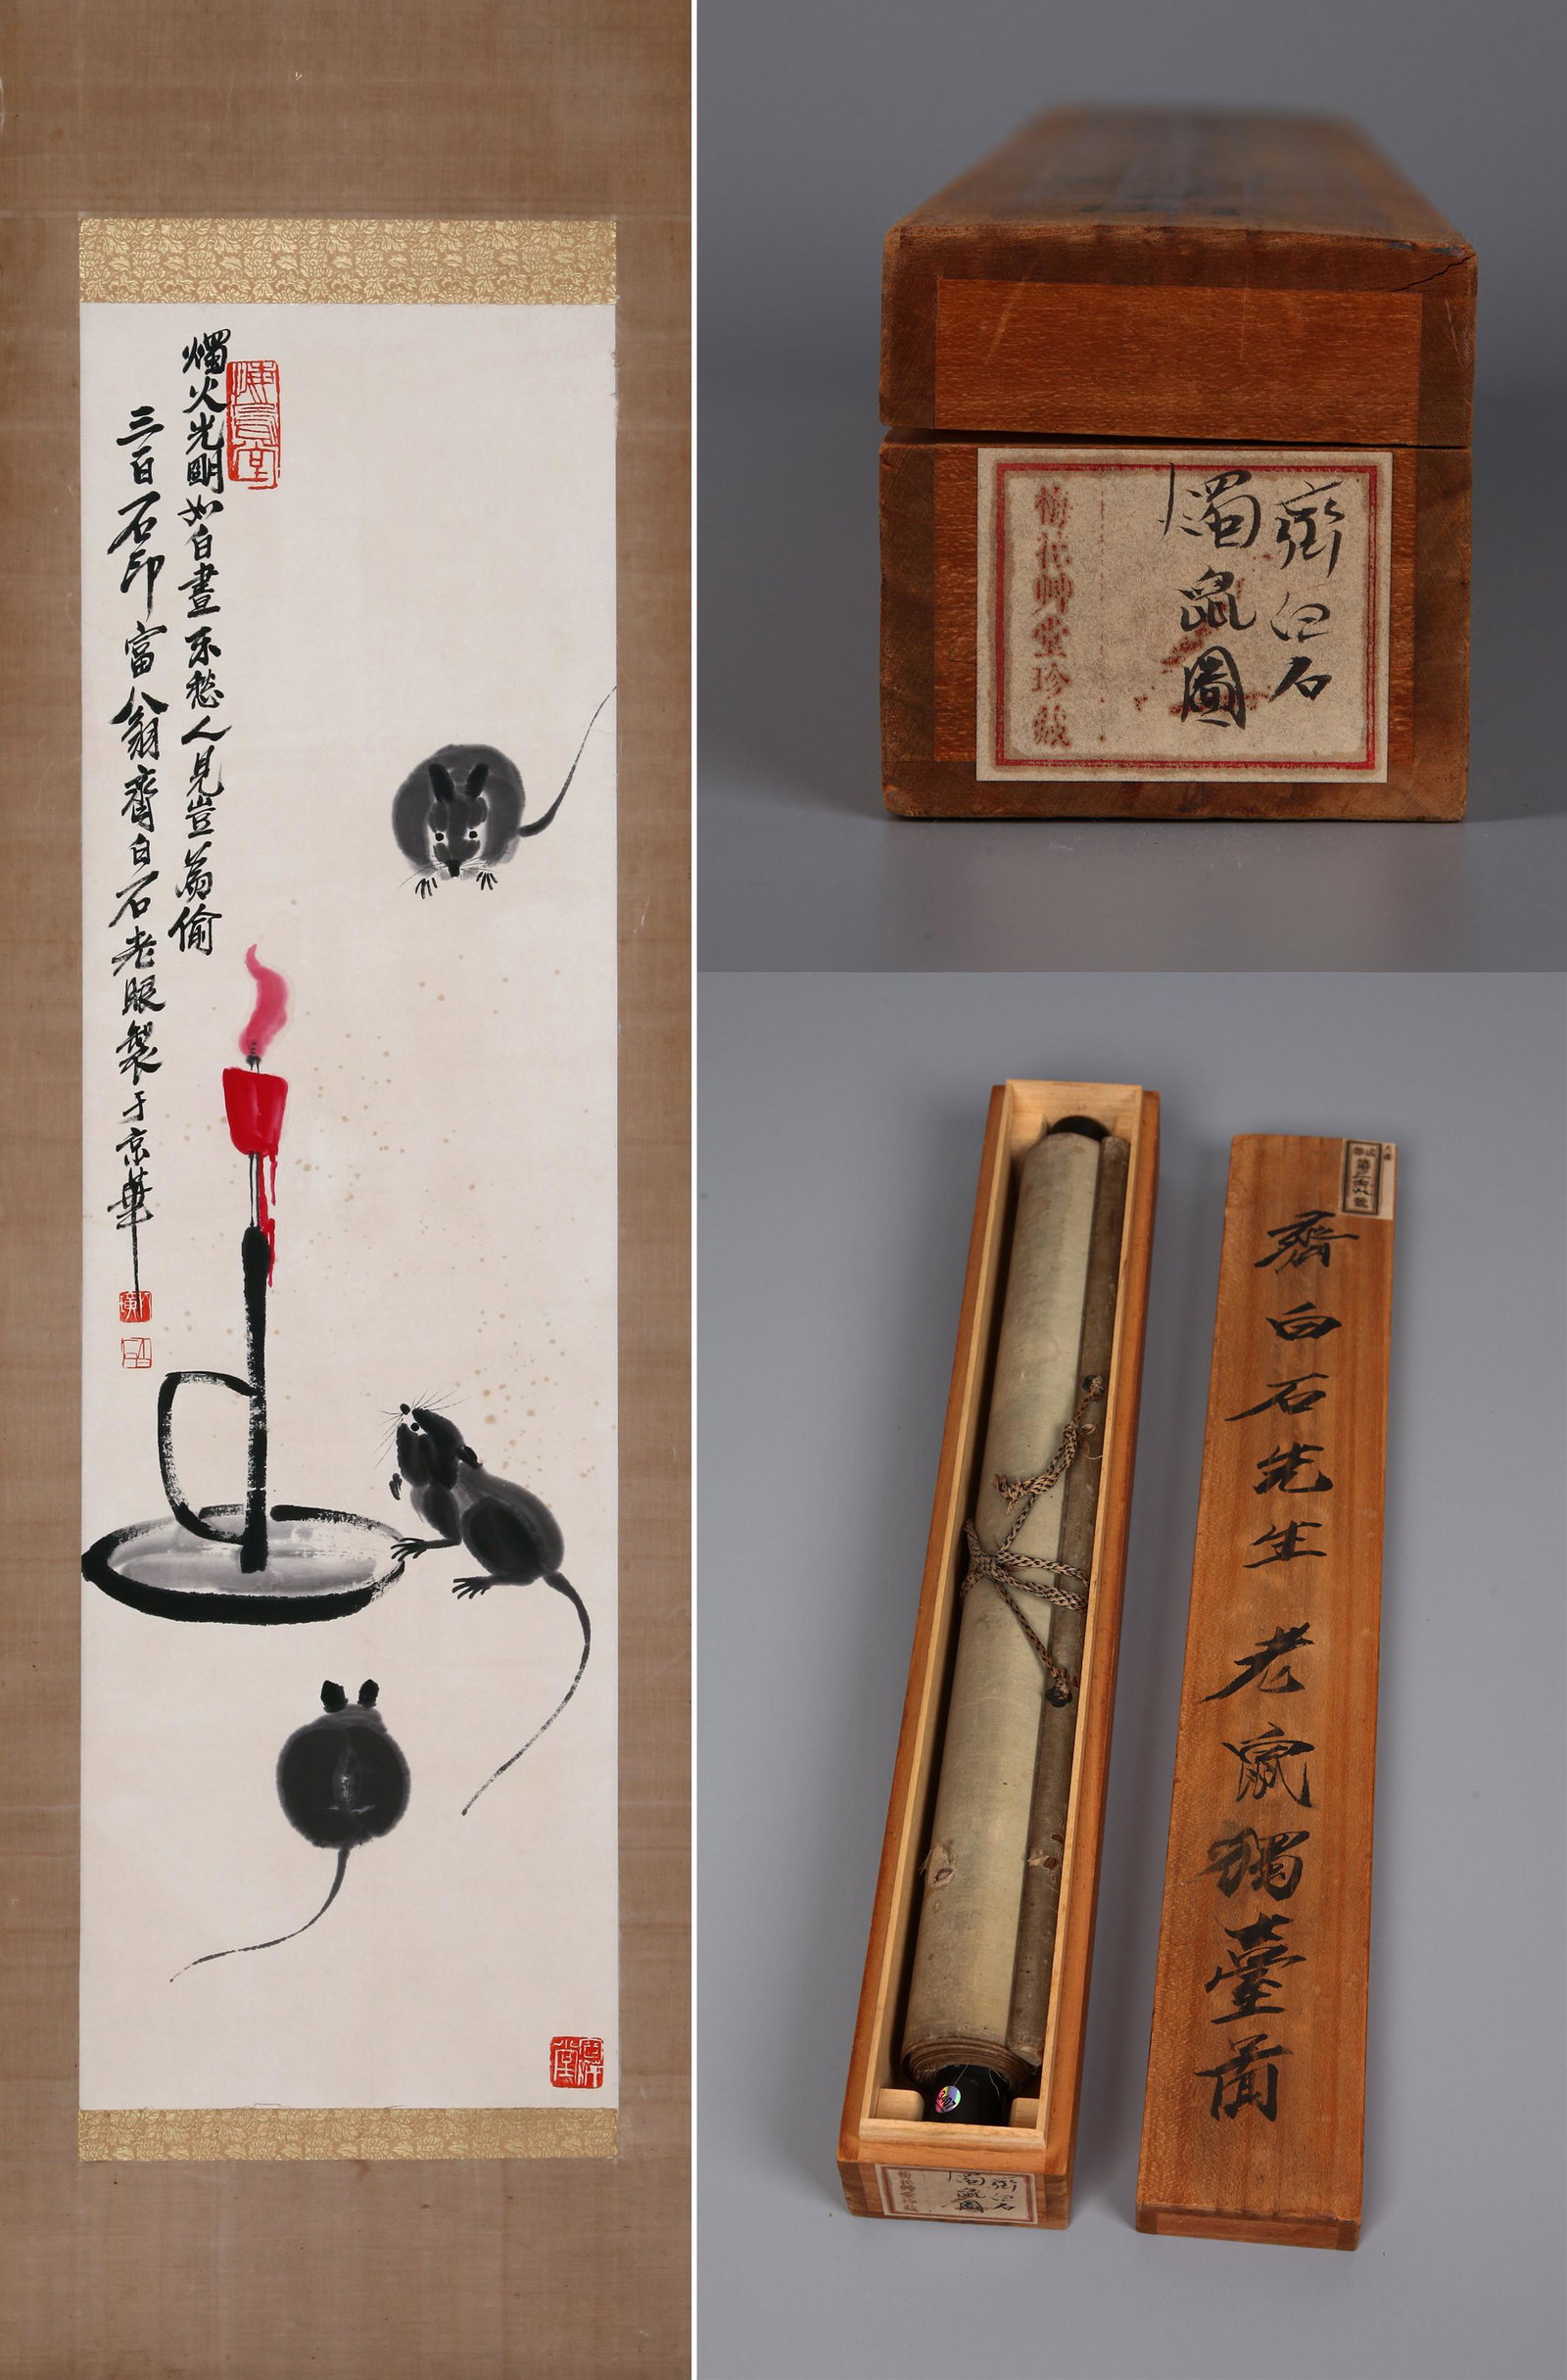 燭火光明如白晝不愁人見豈為偷
三百石印富翁齊白石老眼製于京華
齊白石
燭鼠圖
梅花艸堂珍藏
齊白石先生 老鼠獨臺圖
齊白石
燭鼠圖